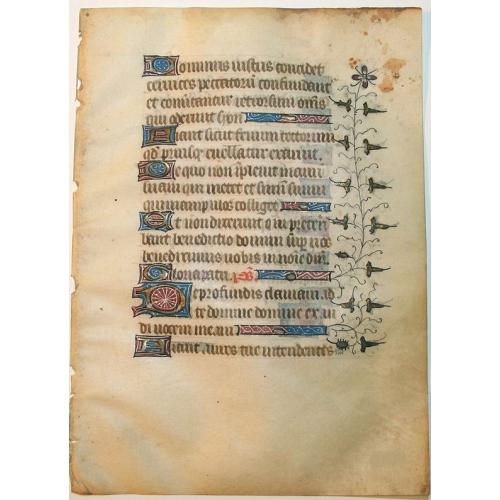 Dominus iustus concidet
cervices peccatorū confundant
et convertantur retrorsum oms
qui oderunt syon
Fiant sicut fenum tectorum
qd priusq̄ evellatur exaruit
De quo non īplevit manū
suam qui metet et sinum suum
qui manipulos colliget
Et non dixerunt qui preteri
bant benedictio domini sup vos
benediximus vobis in noīe dnī
Gloria patri. ps
De profundis clamavi ad
te domine domine exau
di vocem meam
Fiant aures tue intendentes